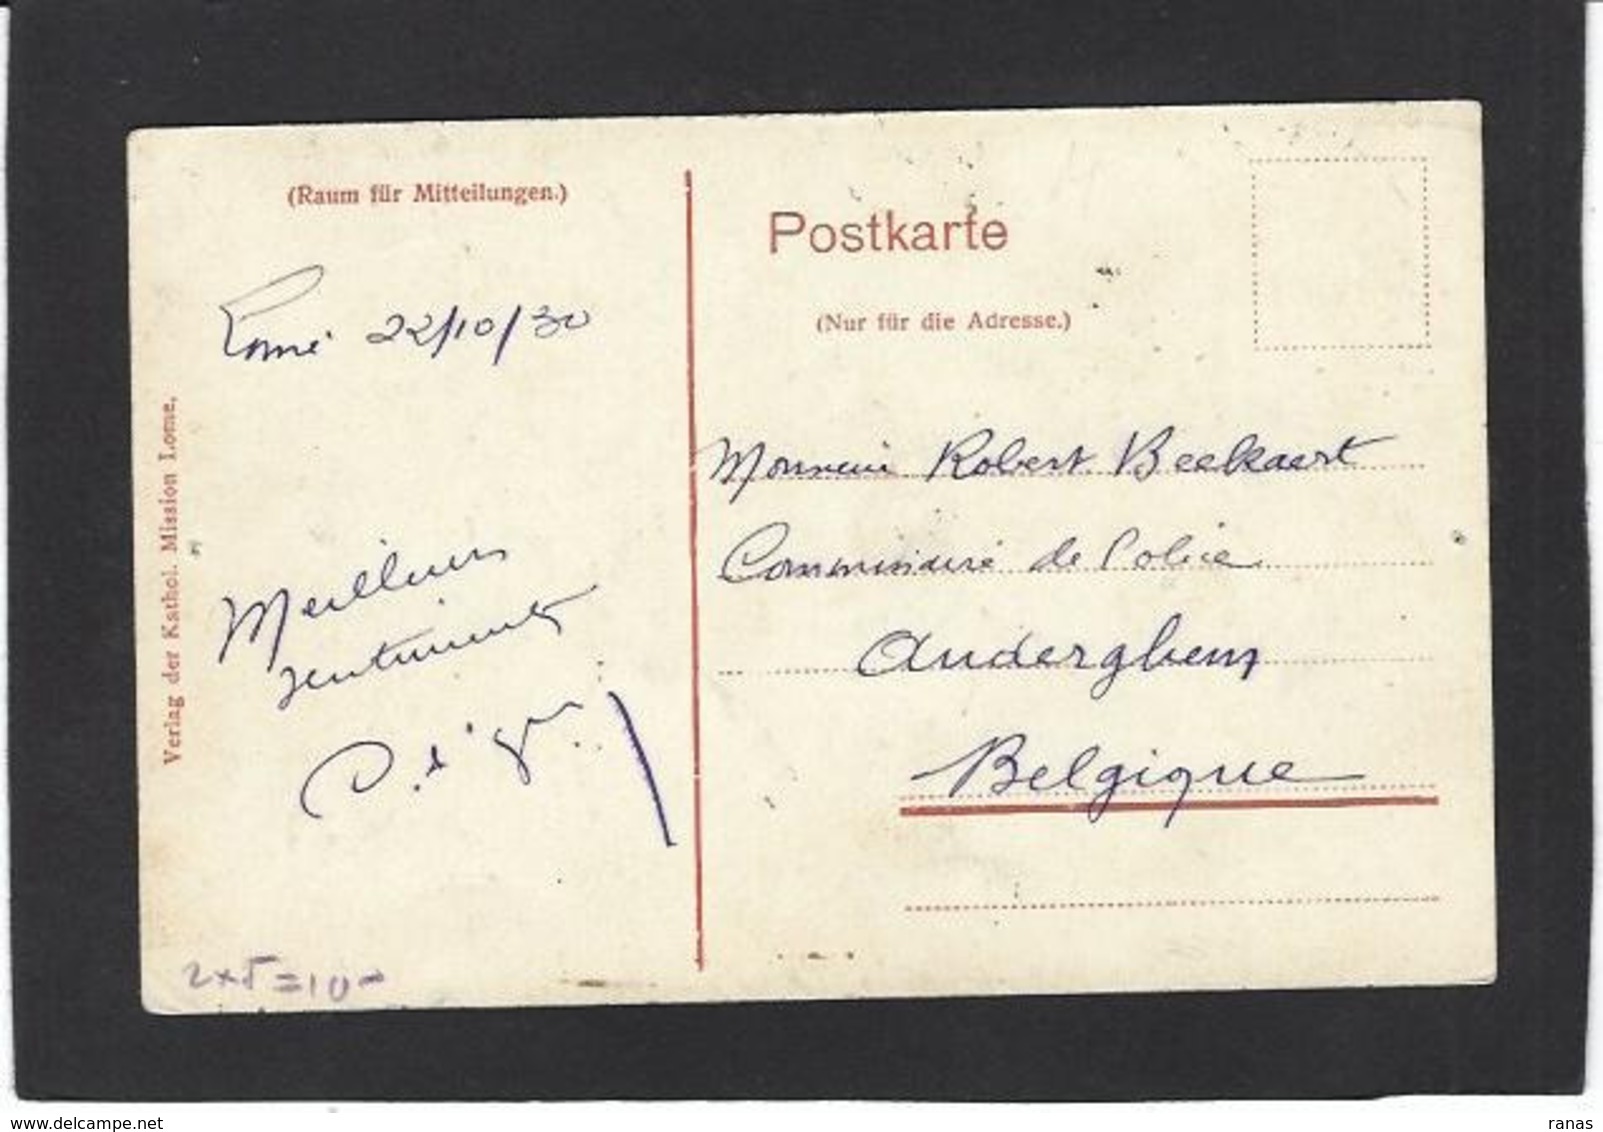 (Raum für Mitteilungen.)
Lomé 22/10/30
Meilleurs
sentiments
Verlag der Kathol. Mission Lome.
2x5=10-
Postkarte
(Nur für die Adresse.)
Monsieur Robert Beekaert
Commissaire de Police
Auderghem
Belgique
delcampe.net
ranas